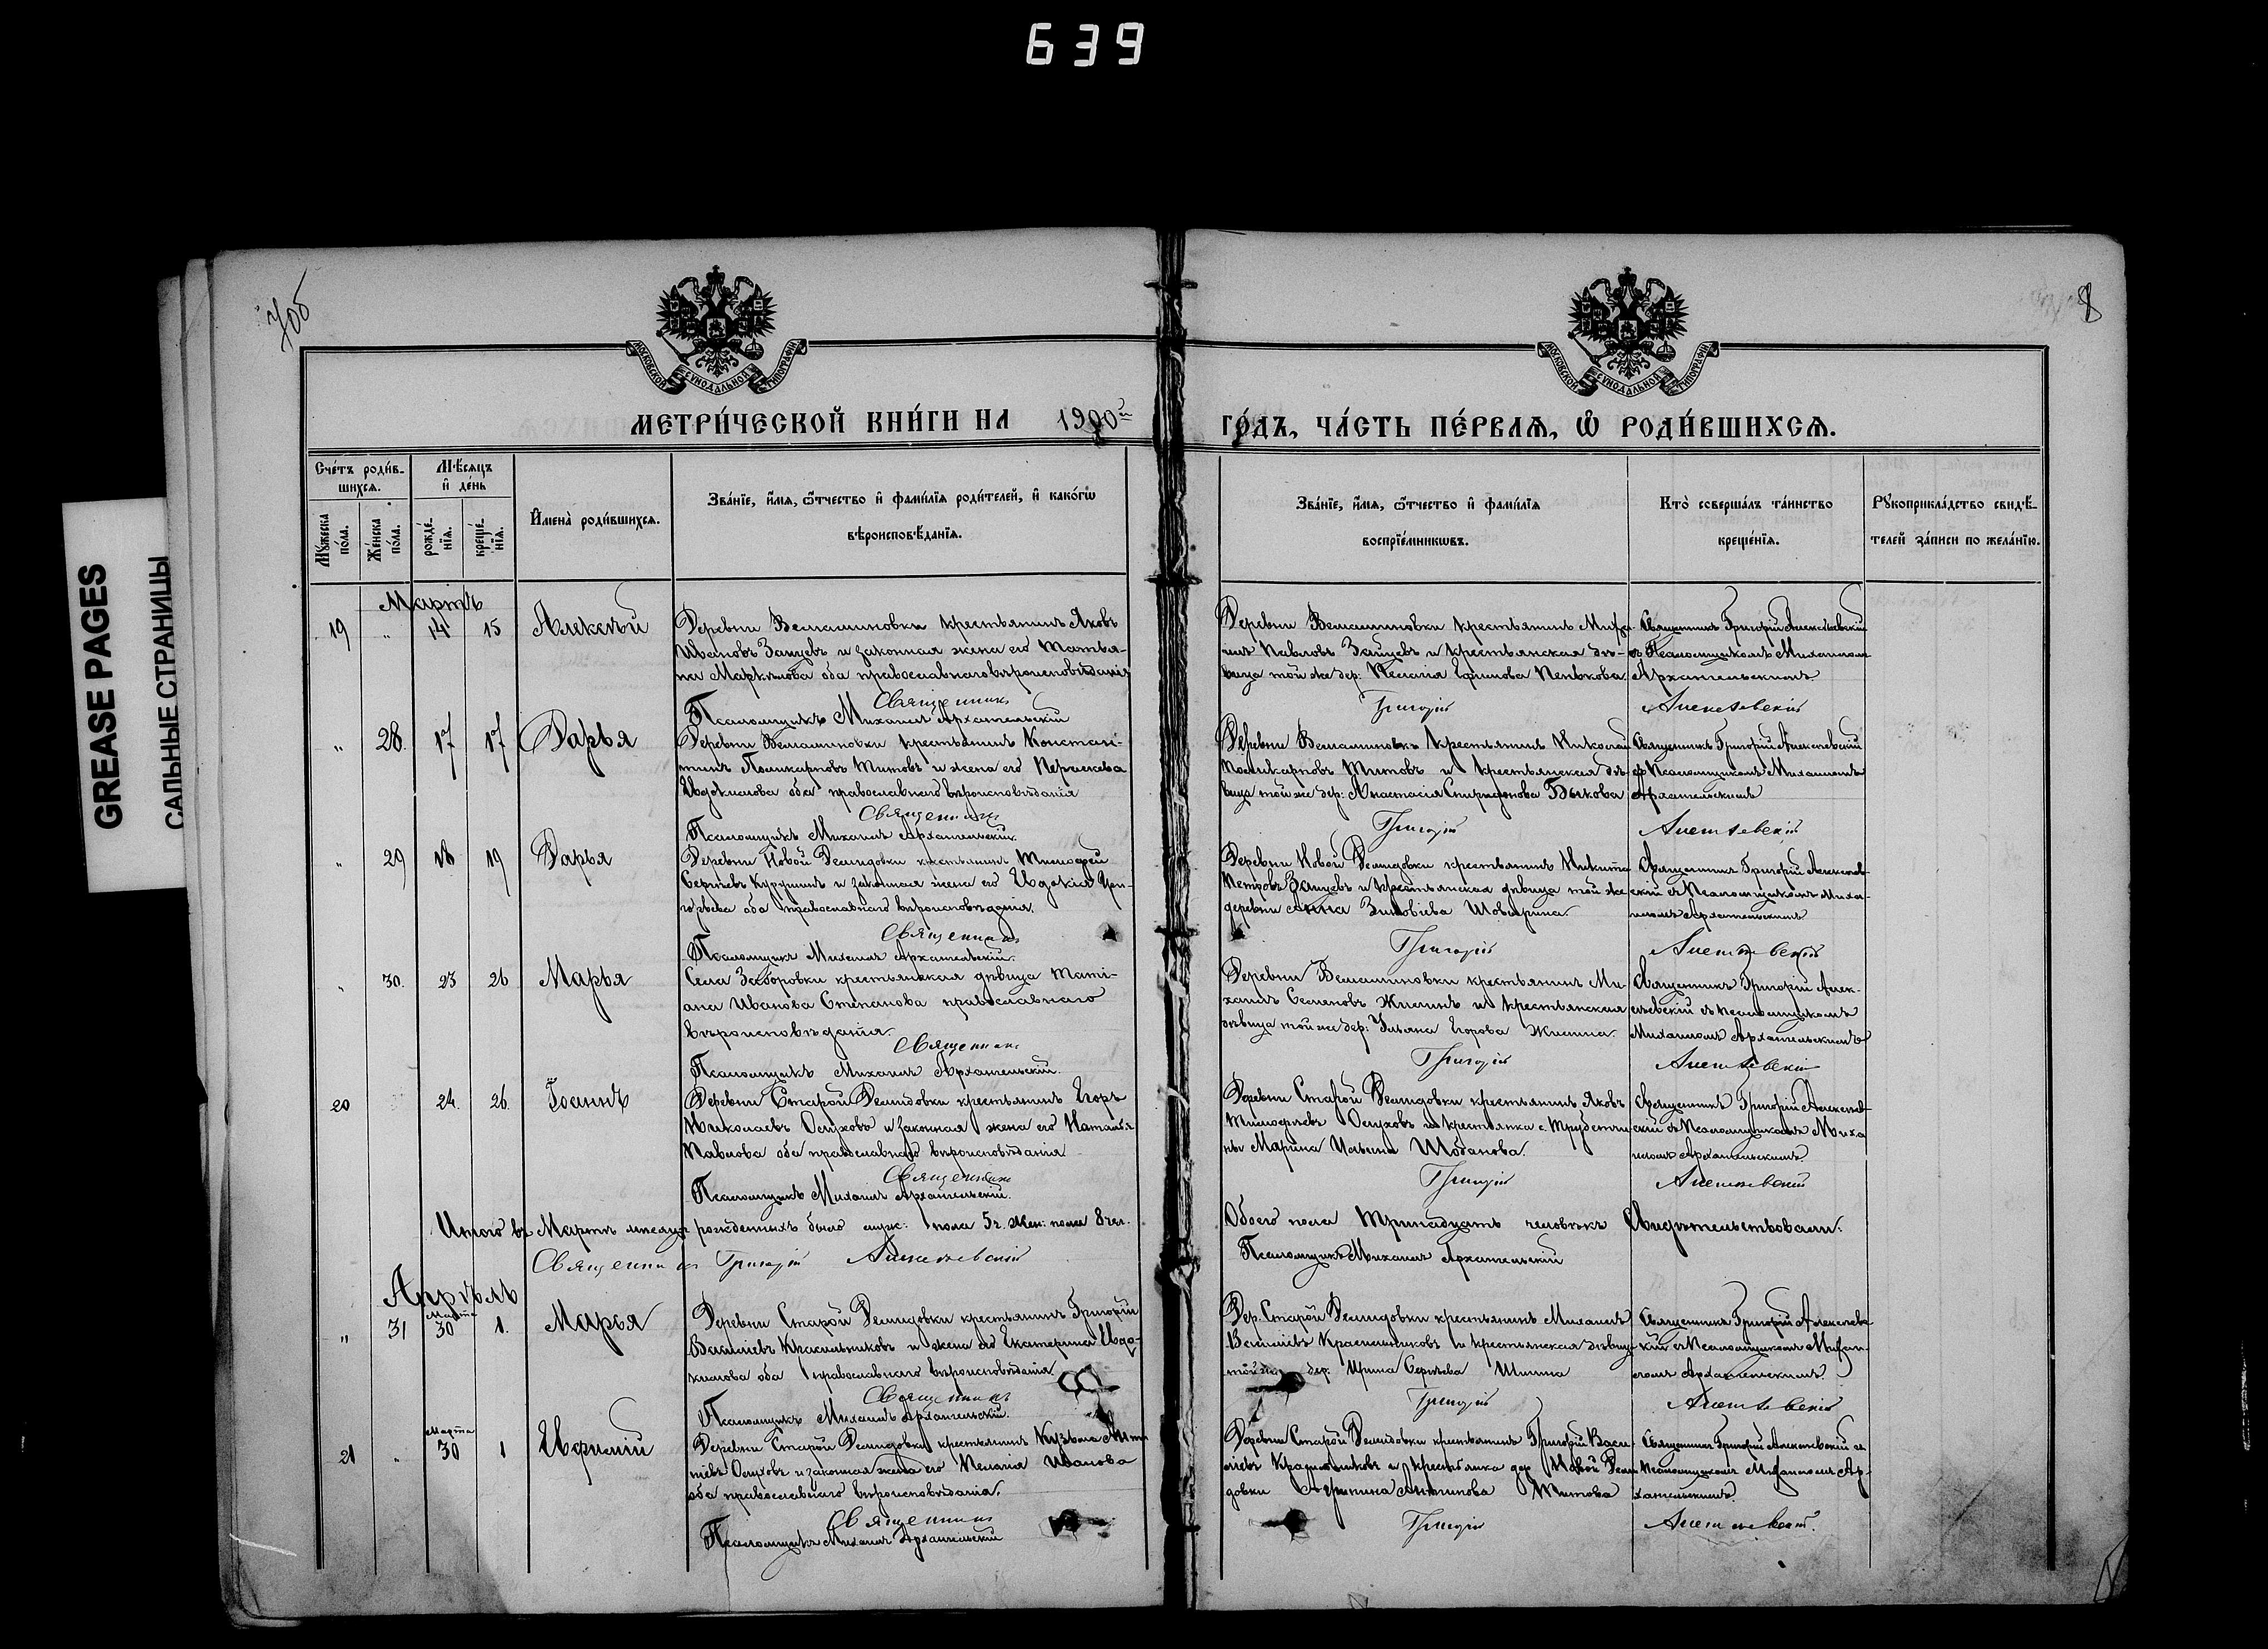 639
GREASE PAGES
САЛЬНЫЕ СТРАНИЦЫ
7об
8
МОСКОВСКОЙ СѴНОДАЛЬНОЙ ТИПОГРАФІИ
МОСКОВСКОЙ СѴНОДАЛЬНОЙ ТИПОГРАФІИ
МЕТРИ́ЧЕСКОЙ КНИ́ГИ НА 1900й ГО́ДЪ, ЧА́СТЬ ПЕ́РВАЯ, Ѡ҆ РОДИ́ВШИХСЯ.
Сче́тъ роди́в-
шихся.
Мѣ́сяцъ
и҆ де́нь
Мꙋ́жеска
по́ла.
Же́нска
по́ла.
рожде́-
нїя.
креще́-
нїя.
И҆мена̀ роди́вшихся.
Зва́нїе, и҆́мя, ѻ҆́тчество и҆ фами́лїя роди́телей, и҆ како́гѡ
вѣроисповѣ́данїя.
Зва́нїе, и҆́мя, ѻ҆́тчество и҆ фами́лїя
воспрїе́мникѡвъ.
Кто̀ соверша́лъ та́инство
креще́нїя.
Рꙋкоприкла́дство свидѣ́-
телей за́писи по жела́нїю.
Мартъ
19 " 14 15 Алексѣй
Деревни Веніаминовки крестьянинъ Яковъ
Ивановъ Зайцевъ и законная жена его Татья-
на Маркѣлова оба православнаго вѣроисповѣданія
Священникъ
Псаломщикъ Михаилъ Архангельскій
Деревни Веніаминовки крестьянинъ Миха-
илъ Павловъ Зайцевъ и крестьянская дѣ-
вица той же дер: Пелагія Ефимова Пенькова.
Григорій
Священникъ Григорій Алексѣевскій
съ Псаломщикомъ Михаиломъ
Архангельскимъ.
Алексѣевскій
" 28. 17 17 Дарья
Деревни Веніаминовки крестьянинъ Констан-
тинъ Поликарповъ Титовъ и жена его Параскева
Евдокимова оба православнаго вѣроисповѣданія
Священникъ
Псаломщикъ Михаилъ Архангельскій.
Деревни Веніаминовкъ крестьянинъ Николай
Поликарповъ Титовъ и крестьянская дѣ-
вица той же дер: Анастасія Спиридонова Быкова
Григорій
Священникъ Григорій Алексѣевскій
съ Псаломщикомъ Михаиломъ
Архангельскимъ
Алексѣевскій
" 29 18 19 Дарья
Деревни Новой Демидовки крестьянинъ Тимофей
Сергѣевъ и законная жена его Евдокія Гри-
горьева оба православнаго вѣроисповѣданія.
Священникъ
Псаломщикъ Михаилъ Архангельскій.
Деревни Новой Демидовки крестьянинъ Никита
Петровъ Зайцевъ и крестьянская дѣвица той же
деревни Анна Зиновіева
Григорій
Священникъ Григорій Алексѣев-
скій съ Псаломщикомъ Миха-
иломъ Архангельскимъ
Алексѣевскій
" 30. 23 26 Марья
Села Заборовки крестьянская дѣвица Тати-
ана Иванова Степанова православнаго
вѣроисповѣданія.
Священникъ
Псаломщикъ Михаилъ Архангельскій.
Деревни Веніаминовки крестьянинъ Ми-
хаилъ Семеновъ Жилинъ и крестьянская
дѣвица той же дер: Ульяна Егорова Жилина.
Григорій
Священникъ Григорій Алек-
сѣевскій съ псаломщикомъ
Михаиломъ Архангельскимъ
Алексѣевскій
20 24. 26. Іоаннъ
Деревни Старой Демидовки крестьянинъ Егоръ
Николаевъ Осуховъ и законная жена его Наталья
Павлова оба православнаго вѣроисповѣданія
Священникъ
Псаломщикъ Михаилъ Архангельскій.
Деревни Старой Демидовки крестьянинъ Яковъ
Тимофеевъ Осуховъ и крестьянка с.
Марина Ильина Шабанова.
Григорій
Священникъ Григорій Алексѣев-
скій съ Псаломщикомъ Миха
иломъ Архангельскимъ.
Алексѣевскій
Итого въ Мартѣ мѣсяцѣ рожденныхъ было муж: пола 5 ч. жен: пола 8 чел.
Обоего пола тринадцать человѣкъ Свидѣтельствовали:
Священникъ Григорій Алексѣевскій
Псаломщикъ Михаилъ Архангельскій
Апрѣль
Марта
" 31 30 1. Марья
Деревни Старой Демидовки крестьянинъ Григорій
Василіевъ Красильниковъ и жена его Екатерина Евдо-
кимова оба православнаго вѣроисповѣданія.
Священникъ
Псаломщикъ Михаилъ Архангельскій.
Дер. Старой Демидовки крестьянинъ Михаилъ
Василіевъ Красильниковъ и крестьянская дѣвица
той же дер: Ирина Сергѣева
Григорій
Священникъ Григорій Алексѣевс-
кій съ Псаломщикомъ Михаи-
ломъ Архангельскимъ.
Алексѣевскій
Марта
21 " 30 1 Евфимій
Деревни Старой Демидовки крестьянинъ Кузьма
Осуховъ и законная жена его Пелагія Иванова
оба православнаго вѣроисповѣданія.
Священникъ
Псаломщикъ Михаилъ Архангельскій
Деревни Старой Демидовки крестьянинъ Григорій Васи-
ліевъ Красильниковъ и крестьянка дер Новой Деми-
довки Титова
Григорій
Священникъ Григорій Алексѣевскій съ
Псаломщикомъ Михаиломъ Ар-
хангельскимъ.
Алексѣевскій.